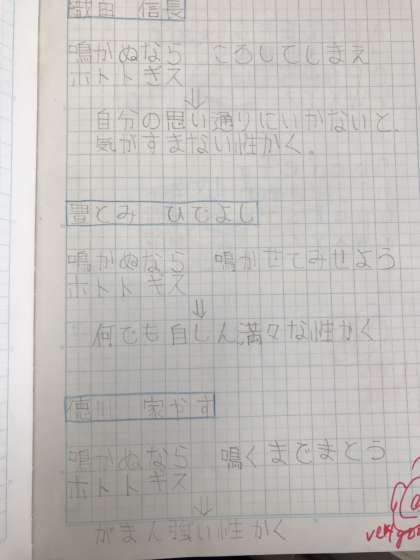 織田 信長
鳴かぬなら ころしてしまえ
ホトトギス
↓
自分の思い通りにいかないと、
気がすまない性かく。
豊とみ ひでよし
鳴かぬなら 鳴かせてみせよう
ホトトギス
↓
何でも自しん満々な性かく
徳川 家やす
鳴かぬなら 鳴くまでまとう
ホトトギス
↓
がまん強い性かく
very goo